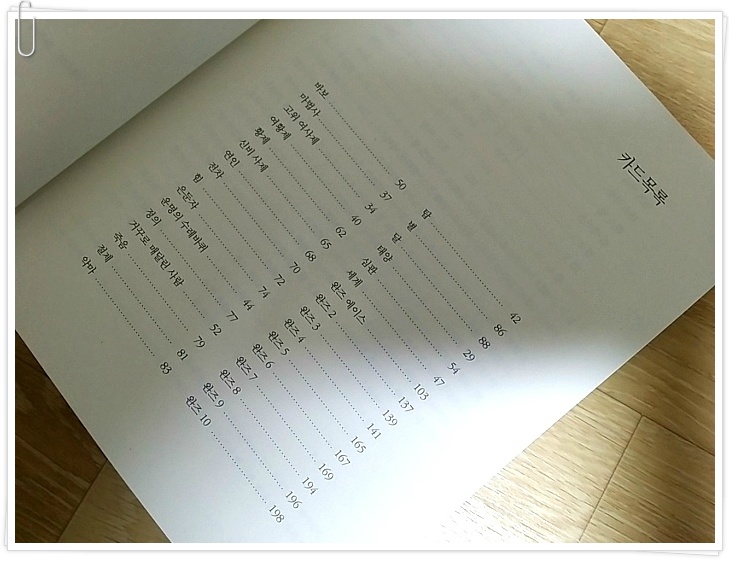 카드목록
바보 50
마법사 37
고위 여사제 34
여황제 40
황제 62
신비 사제 65
연인 68
전차 70
힘 72
은둔자 74
운명의 수레바퀴 44
정의 77
거꾸로 매달린 사람 52
죽음 79
절제 81
악마 83
탑 42
별 86
달 88
태양 29
심판 54
세계 47
완즈 에이스 103
완즈 2 137
완즈 3 139
완즈 4 141
완즈 5 165
완즈 6 167
완즈 7 169
완즈 8 194
완즈 9 196
완즈 10 198